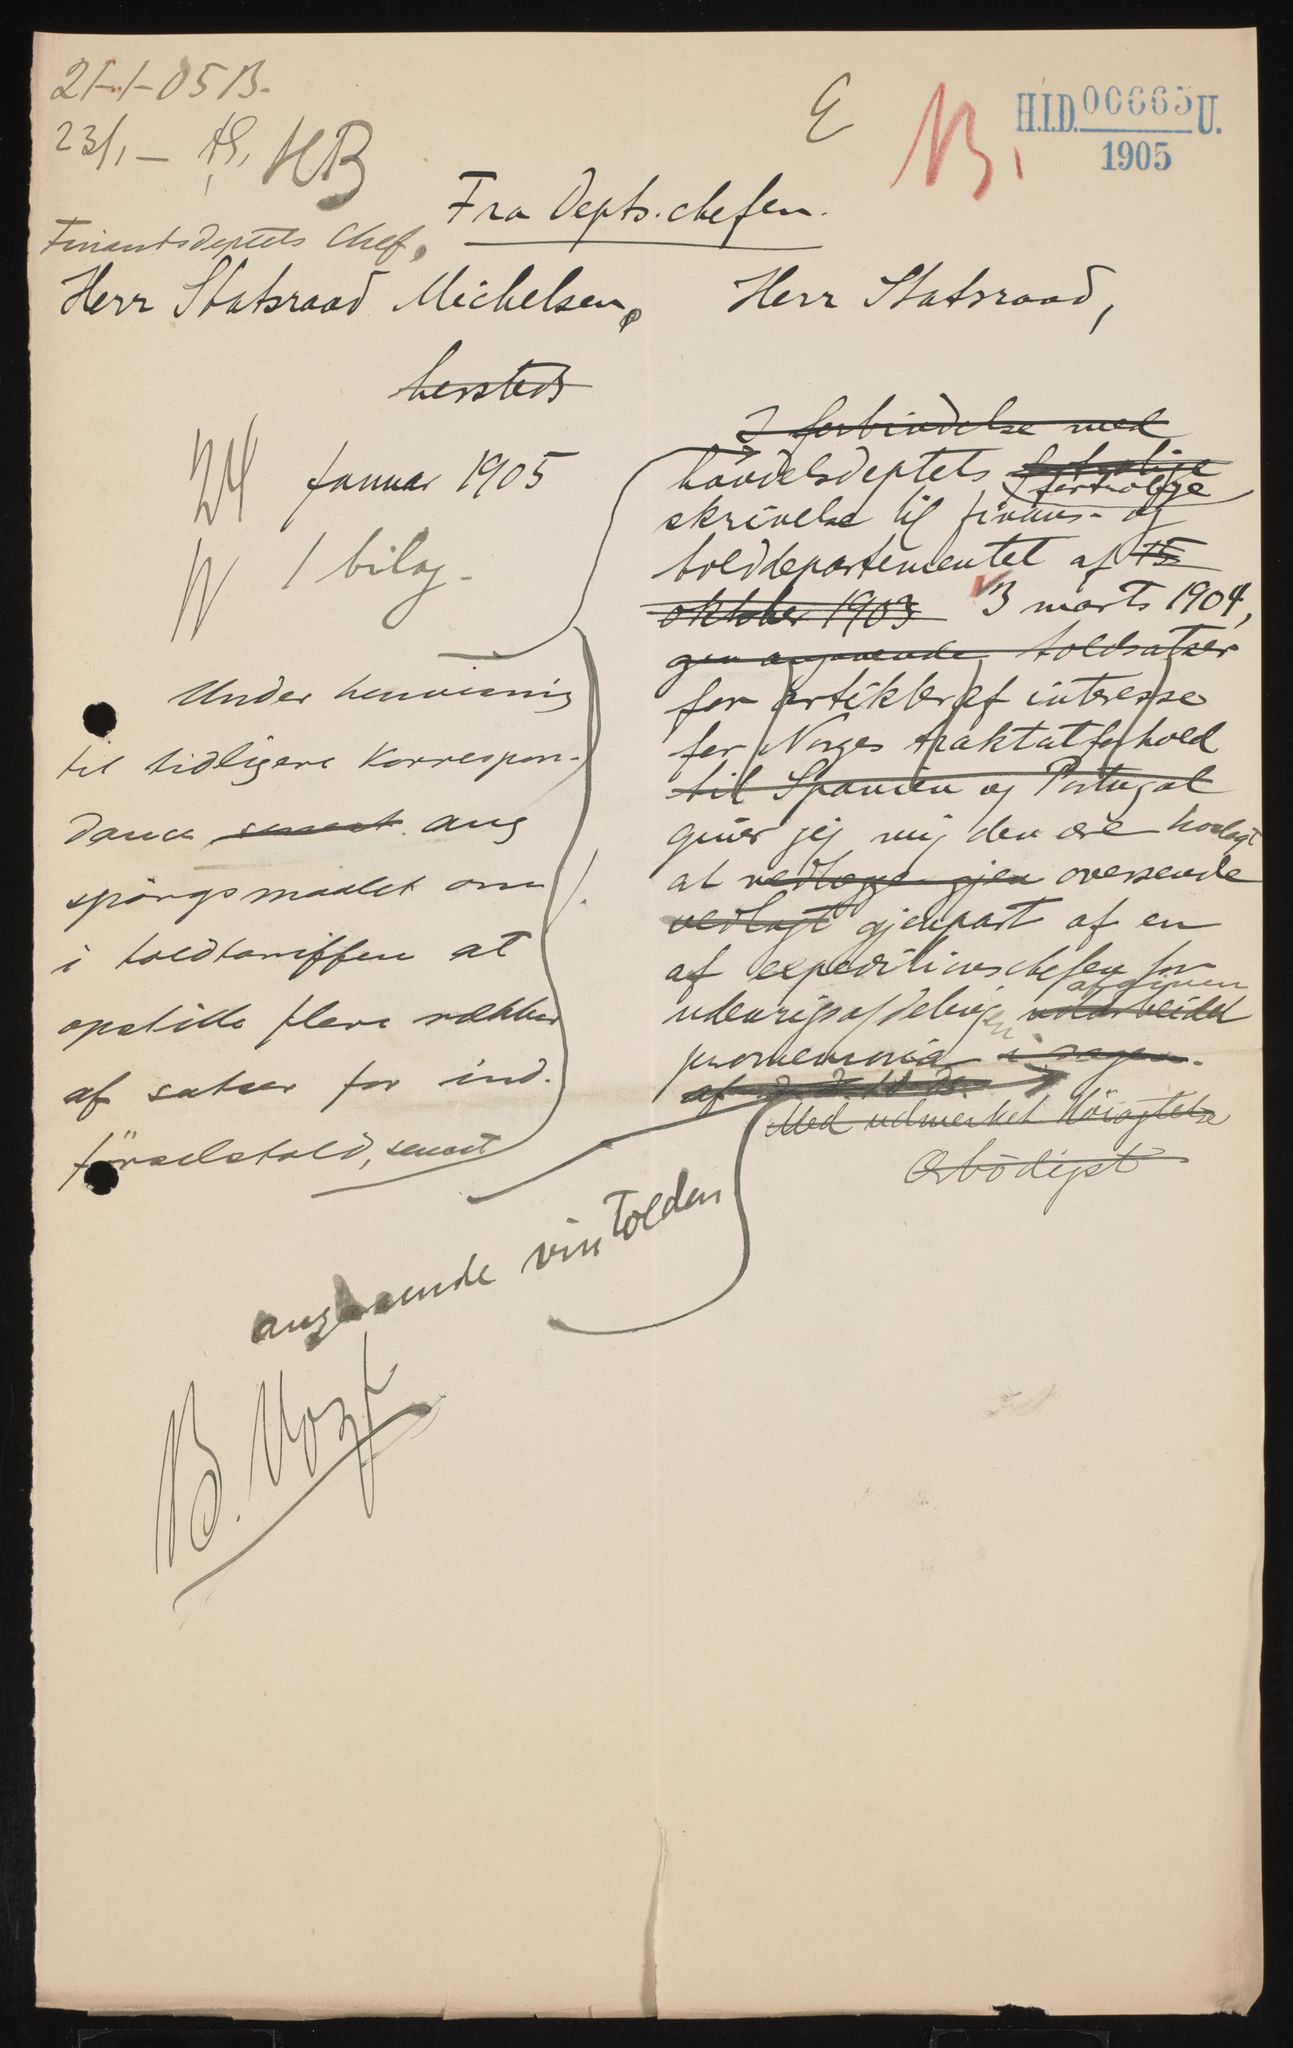 21-1-05 B.
23/1 -
HB
E
B.
H.I.D. 00665 U.
1905
Fra Depts.chefen.
Finantsdeptets Chef,
Herr Statsraad Michelsen,
hersteds
24 januar 1905
1 bilag.
Under henvisning
til tidligere korrespon-
dance senest ang
spörgsmaalet om
i toldtariffen at
opstille flere rækker
af satser for ind-
förselstold, senest
Herr Statsraad,
I forbindelse med
handelsdeptets fortrolige
fortrolige
skrivelse til finans- og
tolddepartementet af 15
oktober 1903 3 marts 1904,
angaaende toldsatser
for artikler af interesse
for Norges traktatforhold
til Spanien og Portugal
giver jeg mig den ære hoslagt
at vedlægge gjen oversende
vedlagt gjenpart af en
af expeditionschefen for
afgiven
udenrigsafdelingen udarbeidet
promemoria i sagen.
Med udmerket Höiagtelse
Ærbödigst
angaaende vintolden
B. Vogt